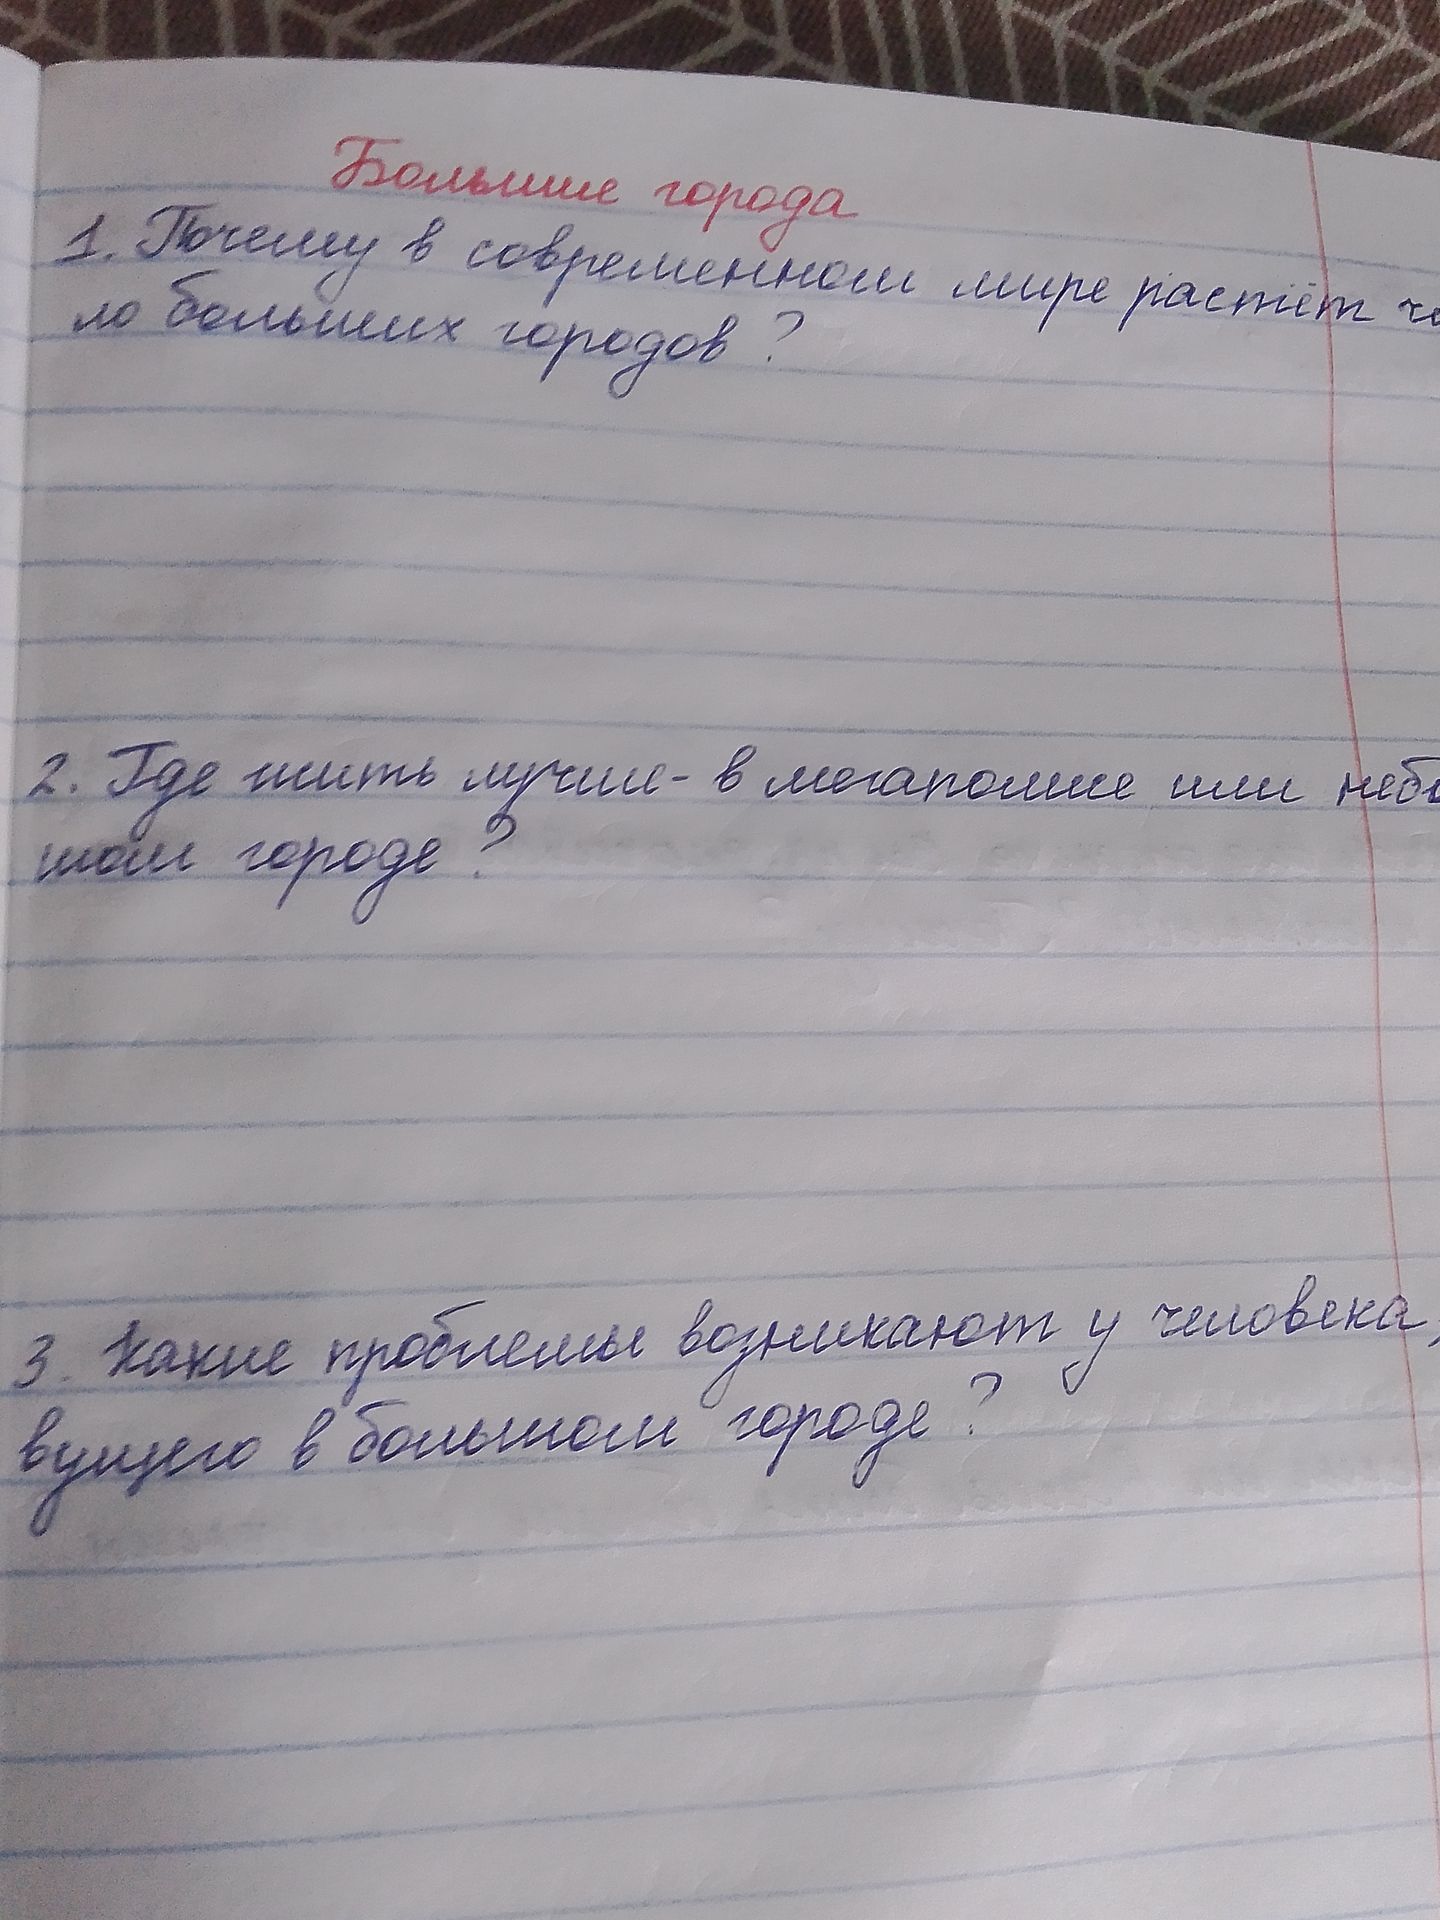 Большие города
1. Почему в современном мире растёт чи
ло больших городов?
2. Где жить лучше - в мегаполисе или небо
шом городе?
3. Какие проблемы возникают у человека,
вущего в большом городе?